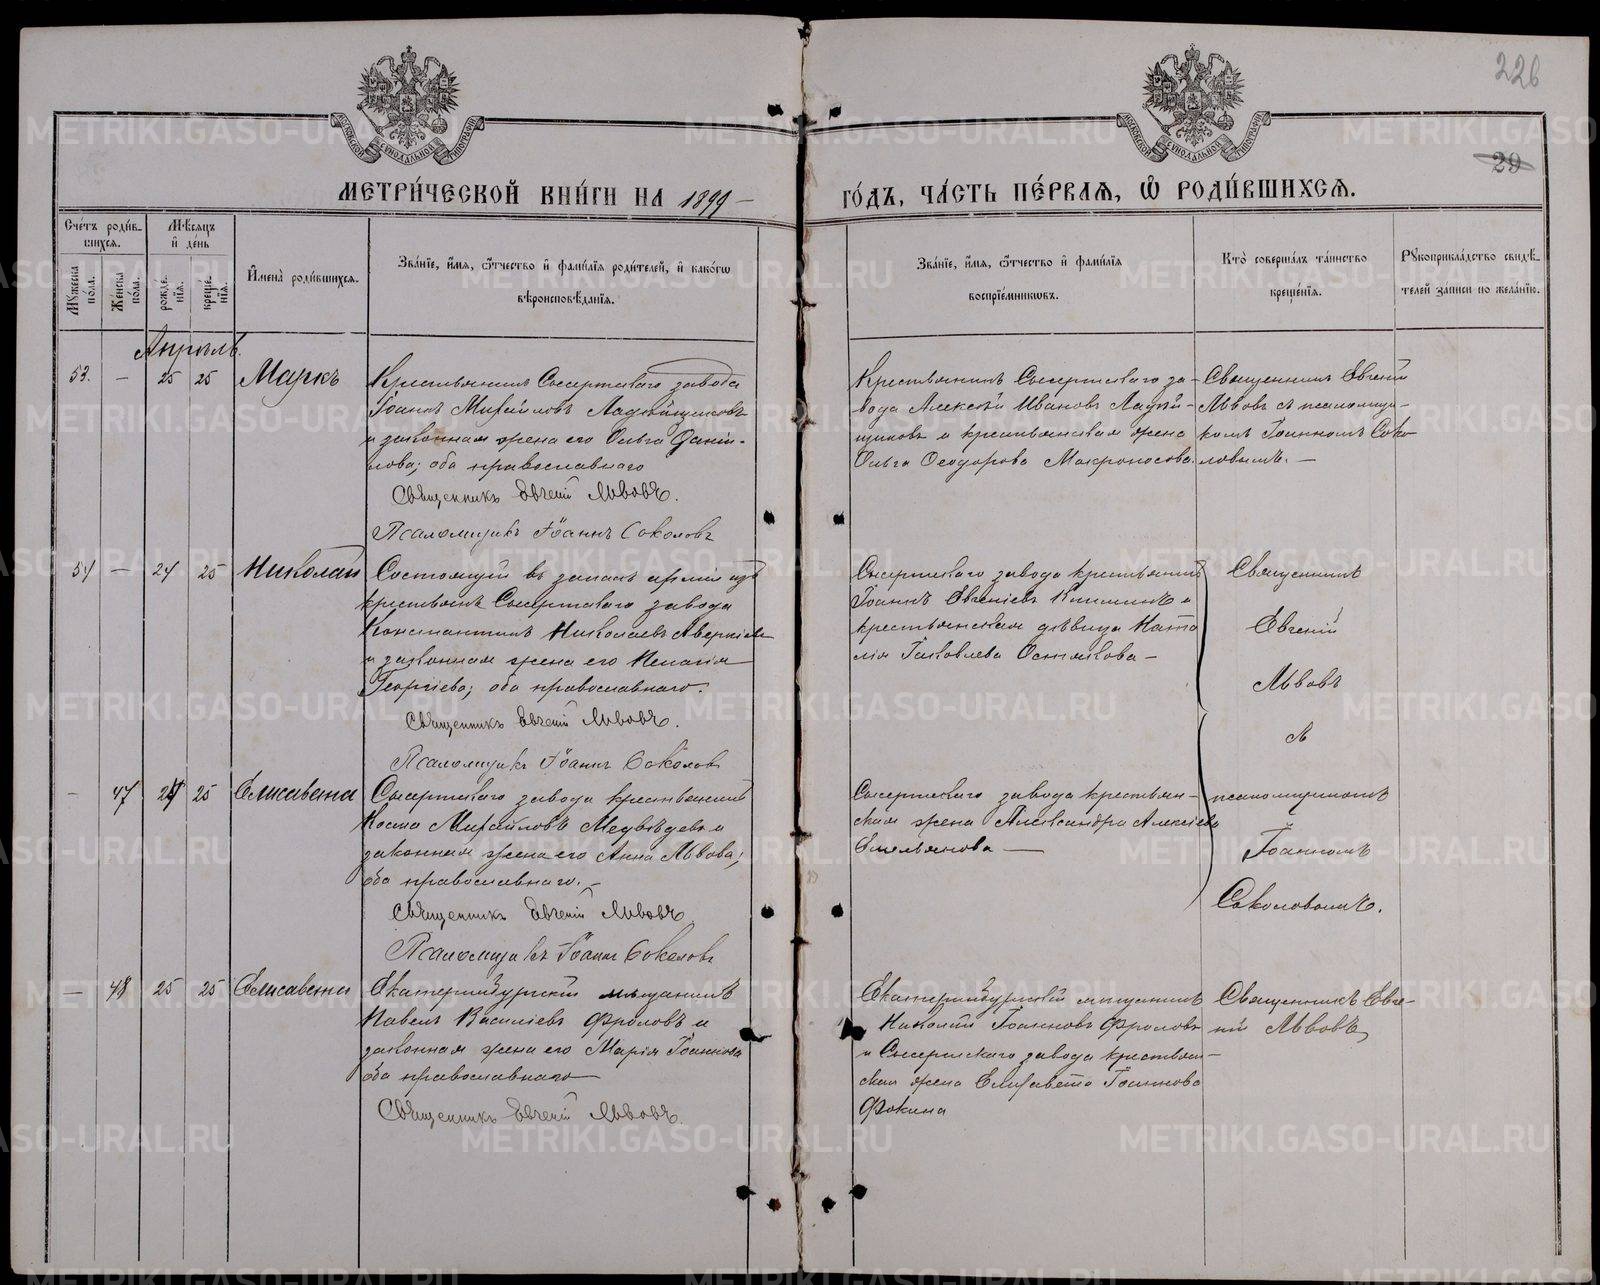 226
29
МОСКОВСКОЙ СѴНОДАЛЬНОЙ ТИПОГРАФІИ
МОСКОВСКОЙ СѴНОДАЛЬНОЙ ТИПОГРАФІИ
МЕТРИ́ЧЕСКОЙ КНИ́ГИ НА 1899 –
ГО́ДЪ, ЧА́СТЬ ПЕ́РВАѦ, Ѽ РОДИ́ВШИХСѦ.
Сче́тъ роди́в-
шихсѧ.
Мѣ́сѧцъ
и҆ де́нь
Мꙋ́жеска
по́ла.
Же́нска
по́ла.
рожде́-
нїѧ.
креще́-
нїѧ.
И҆мена̀ роди́вшихсѧ.
Зва́нїе, и҆́мѧ, ѻ҆́тчество и҆ фами́лїѧ роди́телей, и҆ како́гѡ
вѣроисповѣ́данїѧ.
Зва́нїе, и҆́мѧ, ѻ҆́тчество и҆ фами́лїѧ
воспрїе́мникѡвъ.
Кто̀ соверша́лъ та́инство
креще́нїѧ.
Рꙋкоприкла́дство свидѣ́-
телей за́писи по жела́нїю.
Апрѣль.
53. – 25 25 Маркъ
Крестьянинъ Сысертскаго завода
Іоаннъ Михайловъ Ладейщиковъ
и законная жена его Ольга Дани-
лова; оба православнаго
Священникъ Евгеній Львовъ.
Псаломщикъ Іоаннъ Соколовъ
Крестьянинъ Сысертскаго за-
вода Алексѣй Ивановъ Ладей-
щиковъ и крестьянская жена
Ольга Ѳеодорова Мокроносова.
Священникъ Евгеній
Львовъ съ псаломщи-
комъ Іоанномъ Соко-
ловымъ. –
54 – 24 25 Николай
Состоящій въ запасѣ арміи изъ
крестьянъ Сысертскаго завода
Константинъ Николаевъ Аверкіевъ
и законная жена его Пелагія
Георгіева; оба православнаго.
Священникъ Евгеній Львовъ.
Псаломщикъ Іоаннъ Соколовъ
Сысертскаго завода крестьянинъ
Іоаннъ Евгеніевъ и
крестьянская дѣвица Ната-
лія Іаковлева –
Священникъ
Евгеній
Львовъ
съ
псаломщикомъ
Іоанномъ
Соколовымъ.
– 47 24 25 Елисавета
Сысертскаго завода крестьянинъ
Косма Михайловъ Медвѣдевъ и
законная жена его Анна Львова;
оба православнаго. –
Священникъ Евгеній Львовъ
Псаломщикъ Іоаннъ Соколовъ
Сысертскаго завода крестьян-
ская жена Александра Алексіева
Емельянова –
– 48 25 25 Елисавета
Екатеринбургскій мѣщанинъ
Павелъ Василіевъ Фроловъ и
законная жена его Марія Іоаннова
оба православнаго –
Священникъ Евгеній Львовъ.
Екатеринбургскій мѣщанинъ
Николай Іоанновъ Фроловъ
и Сысертскаго завода крестьян-
ская жена Елизавета Іоаннова
Фокина
Священникъ Евге-
ній Львовъ
METRIKI.GASO-URAL.RU